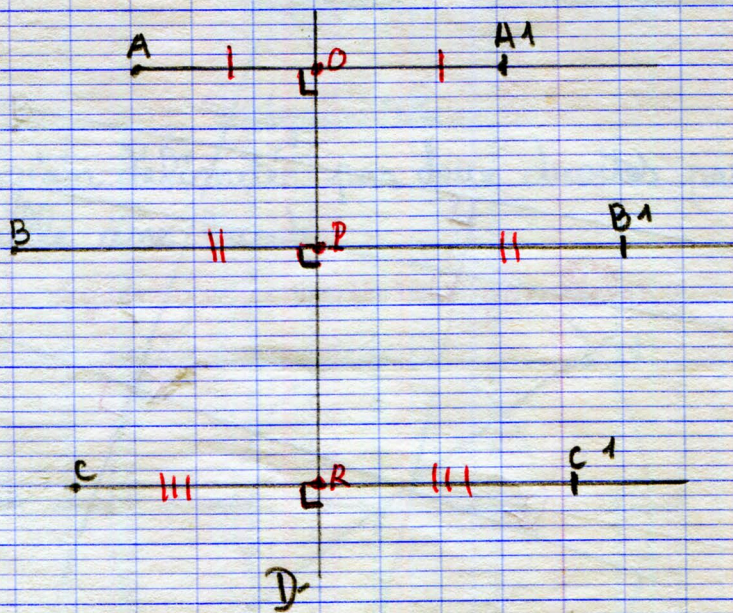 A O A1
B P B1
C R C1
D